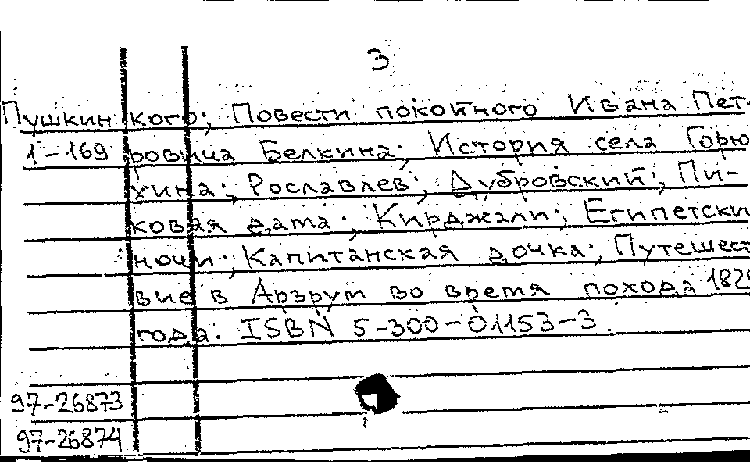 3
Пушкин кого; Повести покойного Ивана Пет-
1-169 ровича Белкина; История села Горю
хина; Рославлев; Дубровский; Пи-
ковая дама; Кирджали; Египетски
ночи; Капитанская дочка; Путешест
вие в Арзрум во время похода 1829
года. ISBN 5-300-01153-3.
97-26873
97-26874